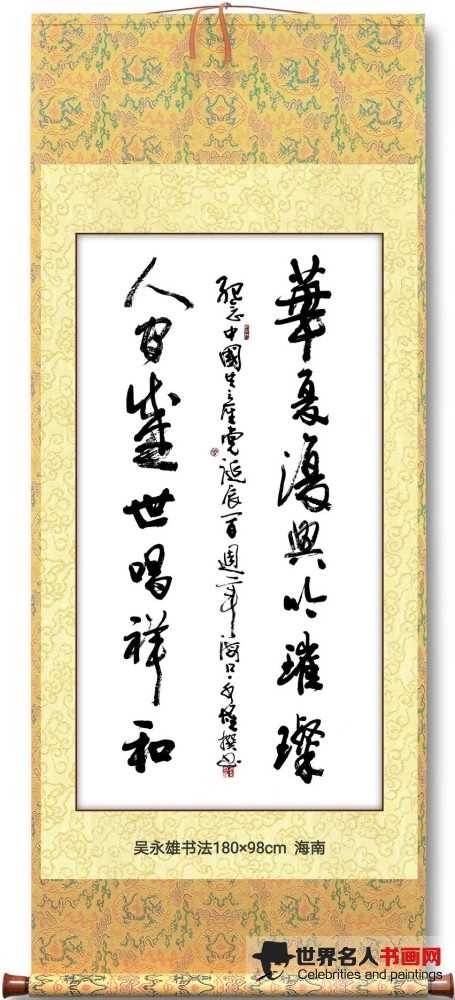 華夏復興吟璀璨
紀念中國共產黨誕辰一百週年海口永雄撰書
人間盛世唱祥和
吴永雄书法180×98cm 海南
世界名人书画网
Celebrities and paintings